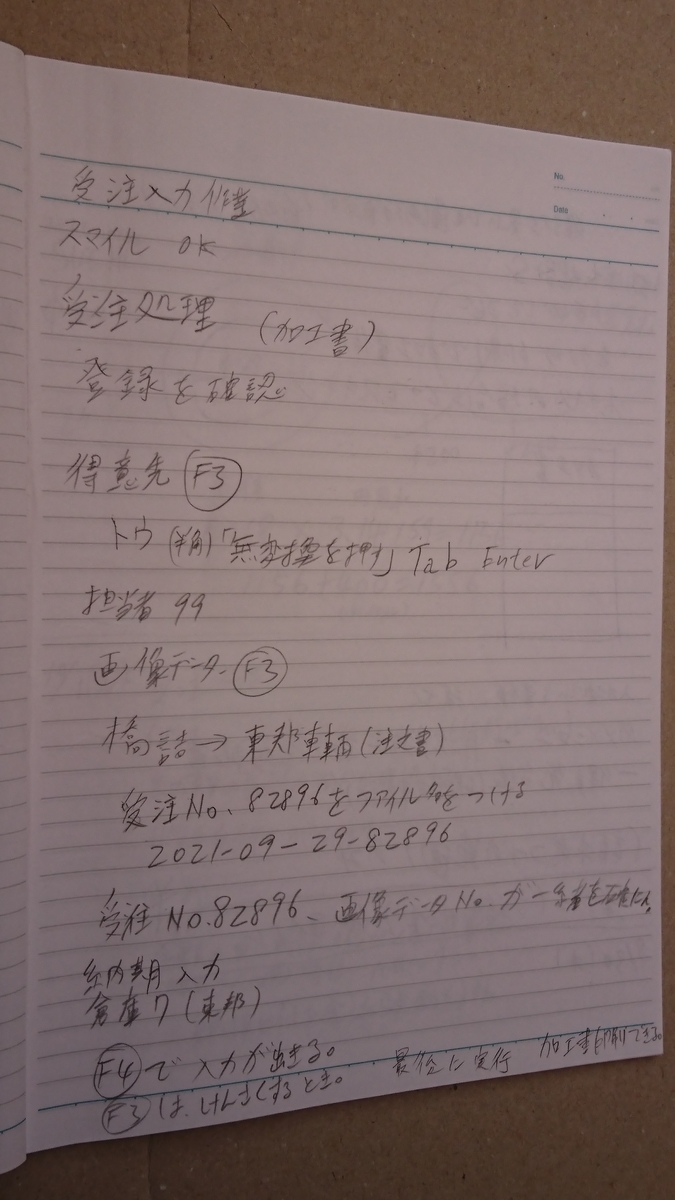 No.
Date
受注入力作業
スマイル OK
受注処理 (加工書)
登録を確認
得意先 F3
トウ(半角)「無変換を押す」Tab Enter
担当者 99
画像データ F3
橋詰→東邦車輌(注文書)
受注No. 82896をファイル名をつける
2021-09-29-82896
受注 No.82896、画像データNo.が一緒を確にん。
納期入力
倉庫7(東邦)
F4で入力が出きる。 最後に実行 加工書印刷できる。
F3は、けんさくするとき。